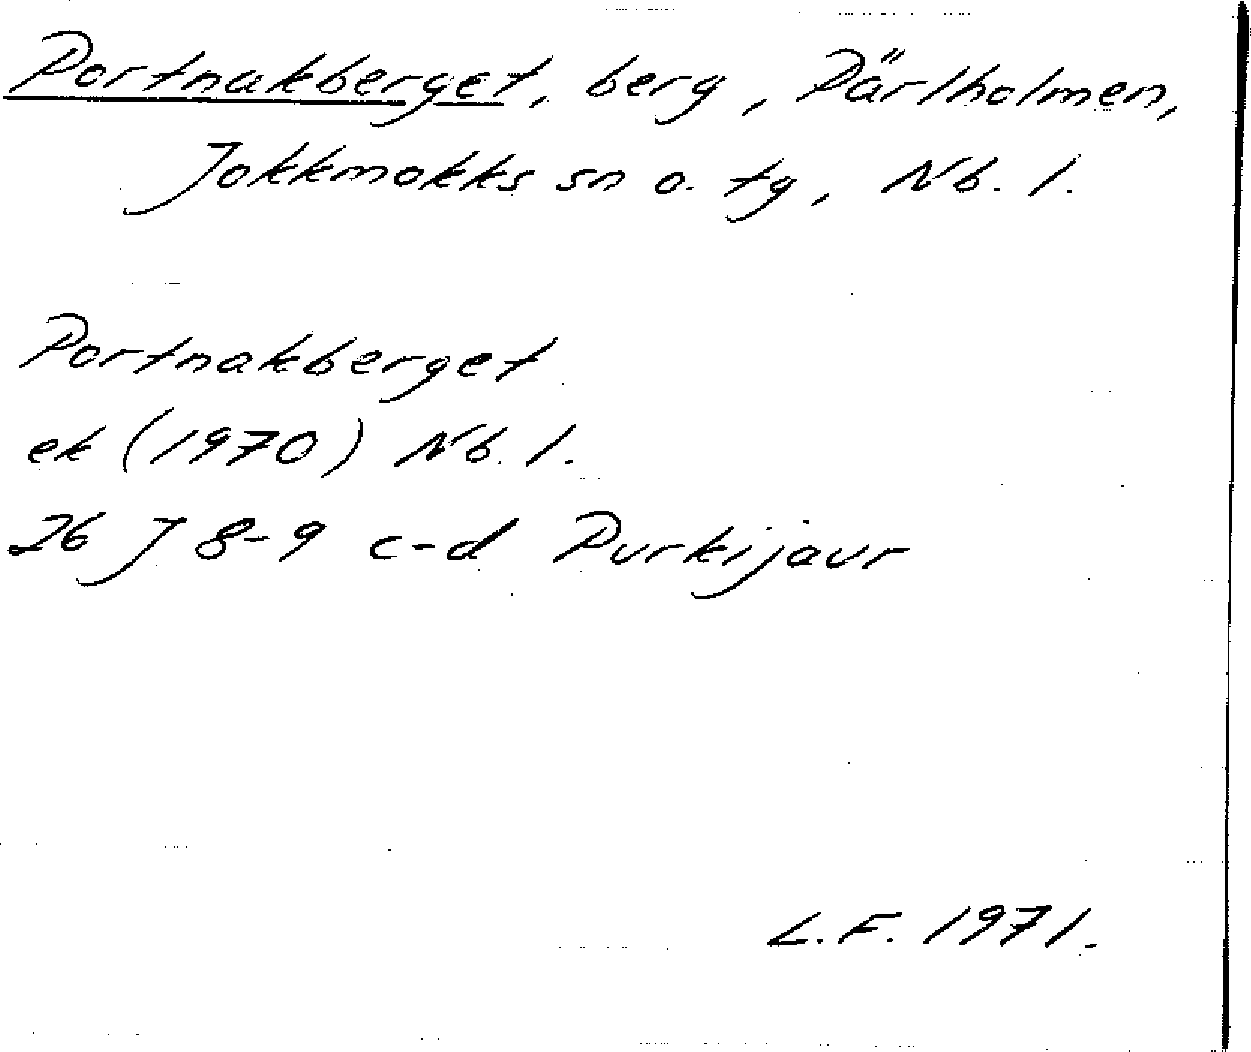 Portnakberget, berg, Pärlholmen,
Jokkmokks sn o. tg, Nb. l.
Portnakberget
ek (1970) Nb. l.
26 J 8-9 c-d Purkijaur
L.F. 1971.